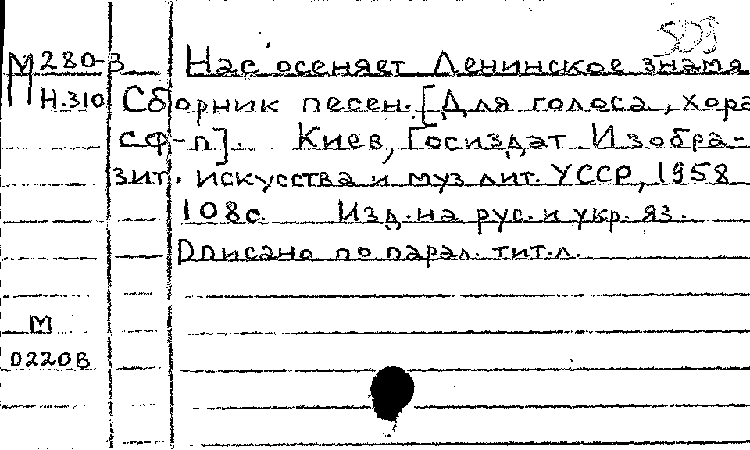 М280-3 Нас осеняет Ленинское знамя
Н.310 Сборник песен. [Для голоса, хора
с ф-п]. Киев, Госиздат Изобра-
зит. искусства и муз лит. УССР, 1958
108с. Изд. на рус. и укр. яз.
Описано по парал. тит. л.
М
0220В